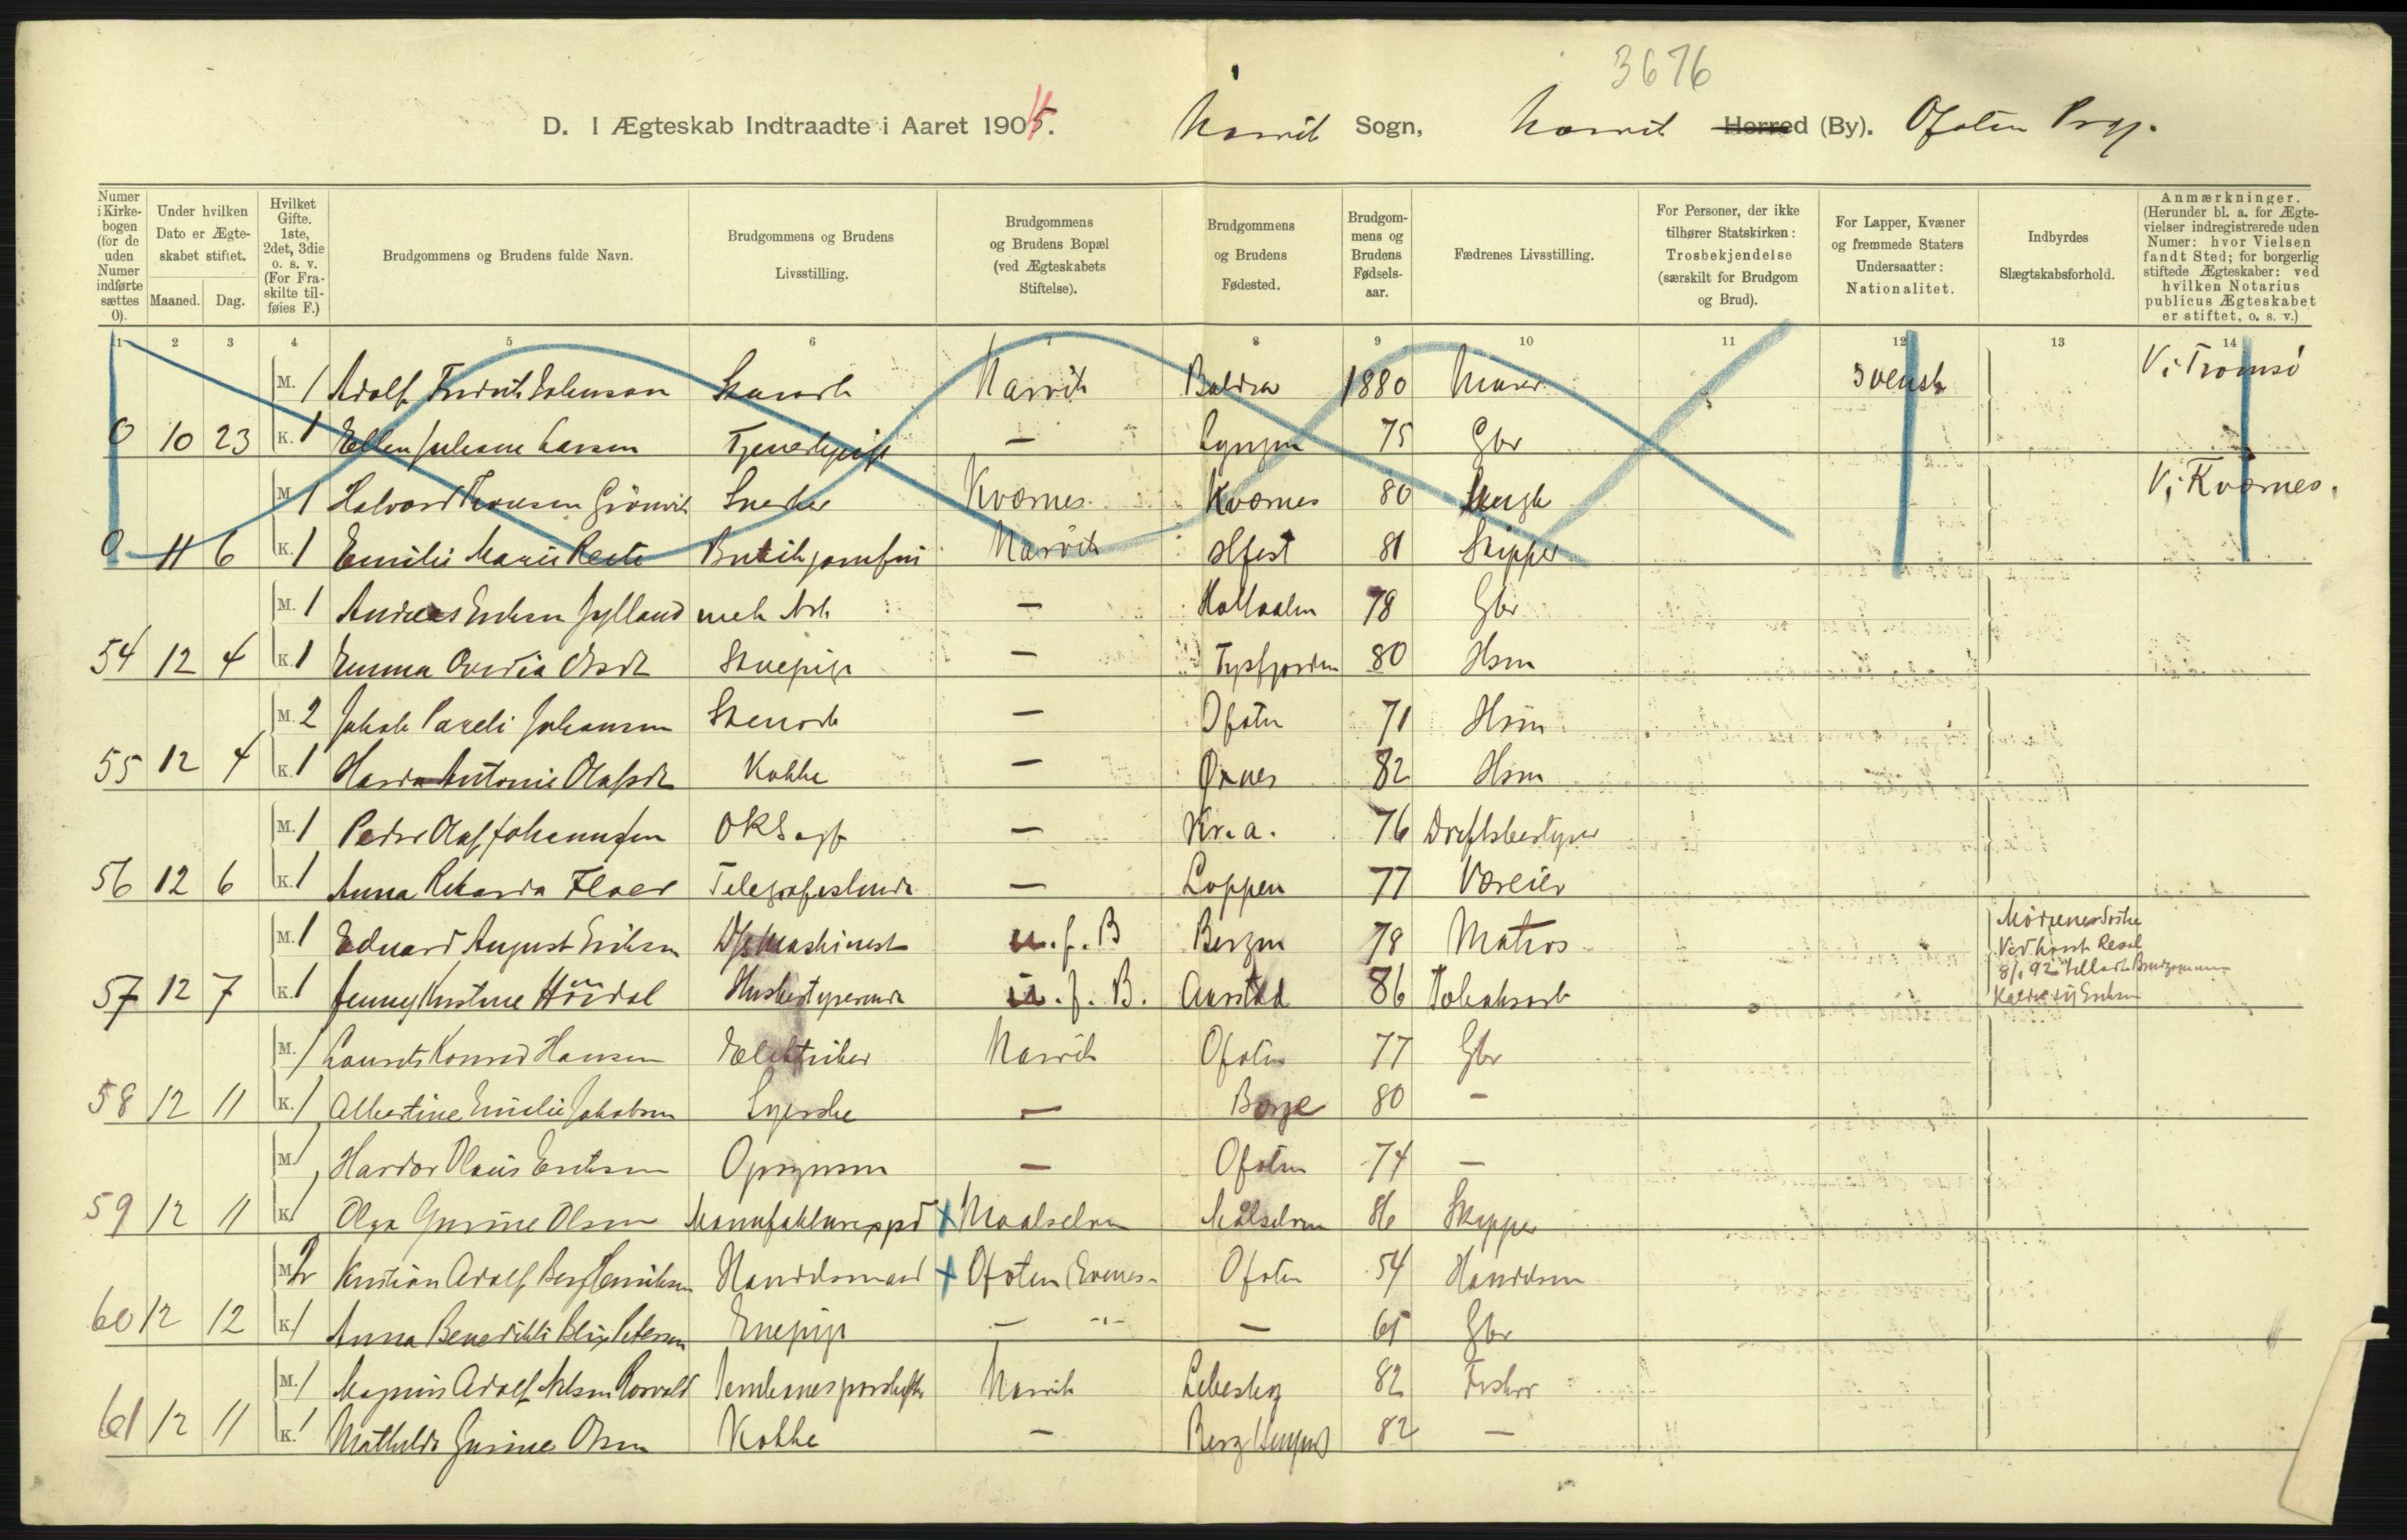 3676
D. I Ægteskab Indtraadte i Aaret 1905. Narvik Sogn, Narvik Herred (By). Ofoten Prgj.
Numer i Kirkebogen (for de uden Numer indførte sættes 0).
Under hvilken Dato er Ægteskabet stiftet.
Maaned. Dag.
Hvilket Gifte. 1ste, 2det, 3die o. s. v. (For Fraskilte tilføies F.)
Brudgommens og Brudens fulde Navn.
Brudgommens og Brudens Livsstilling.
Brudgommens og Brudens Bopæl (ved Ægteskabets Stiftelse).
Brudgommens og Brudens Fødested.
Brudgommens og Brudens Fødselsaar.
Fædrenes Livsstilling.
For Personer, der ikke tilhører Statskirken: Trosbekjendelse (særskilt for Brudgom og Brud).
For Lapper, Kvæner og fremmede Staters Undersaatter: Nationalitet.
Indbyrdes Slægtskabsforhold.
Anmærkninger. (Herunder bl. a. for Ægtevielser indregistrerede uden Numer: hvor Vielsen fandt Sted; for borgerlig stiftede Ægteskaber: ved hvilken Notarius publicus Ægteskabet er stiftet, o. s. v.)
1 2 3 4 5 6 7 8 9 10 11 12 13 14
M. 1 Adolf Fredrik Johnson Narvik 1880 Murer svensk V. i Tromsø
0 10 23 K. 1 Ellen Juliane Larsen Tjenestepige — Lyngen 75 Gbr
M. 1 Halvard Snedker Kværnes Kværnes 80 V. i Kværnes.
0 11 6 K. 1 Emilie Marie Butikjomfru Narvik 81 Skipper
M. 1 Andreas Eriksen Jylland mek Arb — 78 Gbr
54 12 4 K. 1 Emma Ovedia Stuepige — Tysfjorden 80 Hsm
M. 2 Jakob Pareli Johansen Stenarb — Ofoten 71 Hsm
55 12 4 K. 1 Antonie Olafsdt Kokke — Øxnes 82 Hsm
M. 1 Peder Olaf Johannesen — Kr.a. 76 Driftsbestyrer
56 12 6 K. 1 Anna Rikarda Floer Telegrafistinde — Loppen 77 Væreier
M. 1 Eduard August Eriksen D/s Maskinist u. f. B Bergen 78 Matros
57 12 7 K. 1 Jenny Kristine Höidal Husbestyrerinde u. f. B. Aarstad 86 Tobaksarb
M. 1 Laurits Konrad Hansen Elektriker Narvik Ofoten 77 Gbr
58 12 11 K. 1 Albertine Emilie Jakobsen Syerske — Borge 80 —
M 1 Hardor Olaus Eriksen Opsynsm — Ofoten 74 —
59 12 11 K 1 Olga Gurine Olsen x Maalselven Målselven 86 Skipper
M 2 Kristian Adolf Berg Henriksen Handelsmand x Ofoten Evenes Ofoten 54 Handelsm
60 12 12 K 1 Anna Benedikte Blix Petersen — — 65 Gbr
M. 1 Magnus Adolf Nelsen Narvik Lebesby 82 Fisker
61 12 11 K. 1 Mathilde Gurine Olsen Kokke — Berg 82 —